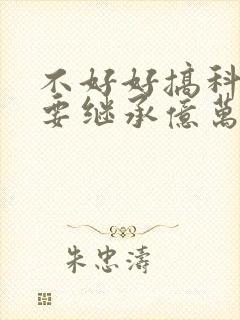 不好好搞科
要继承億萬
朱忠濤